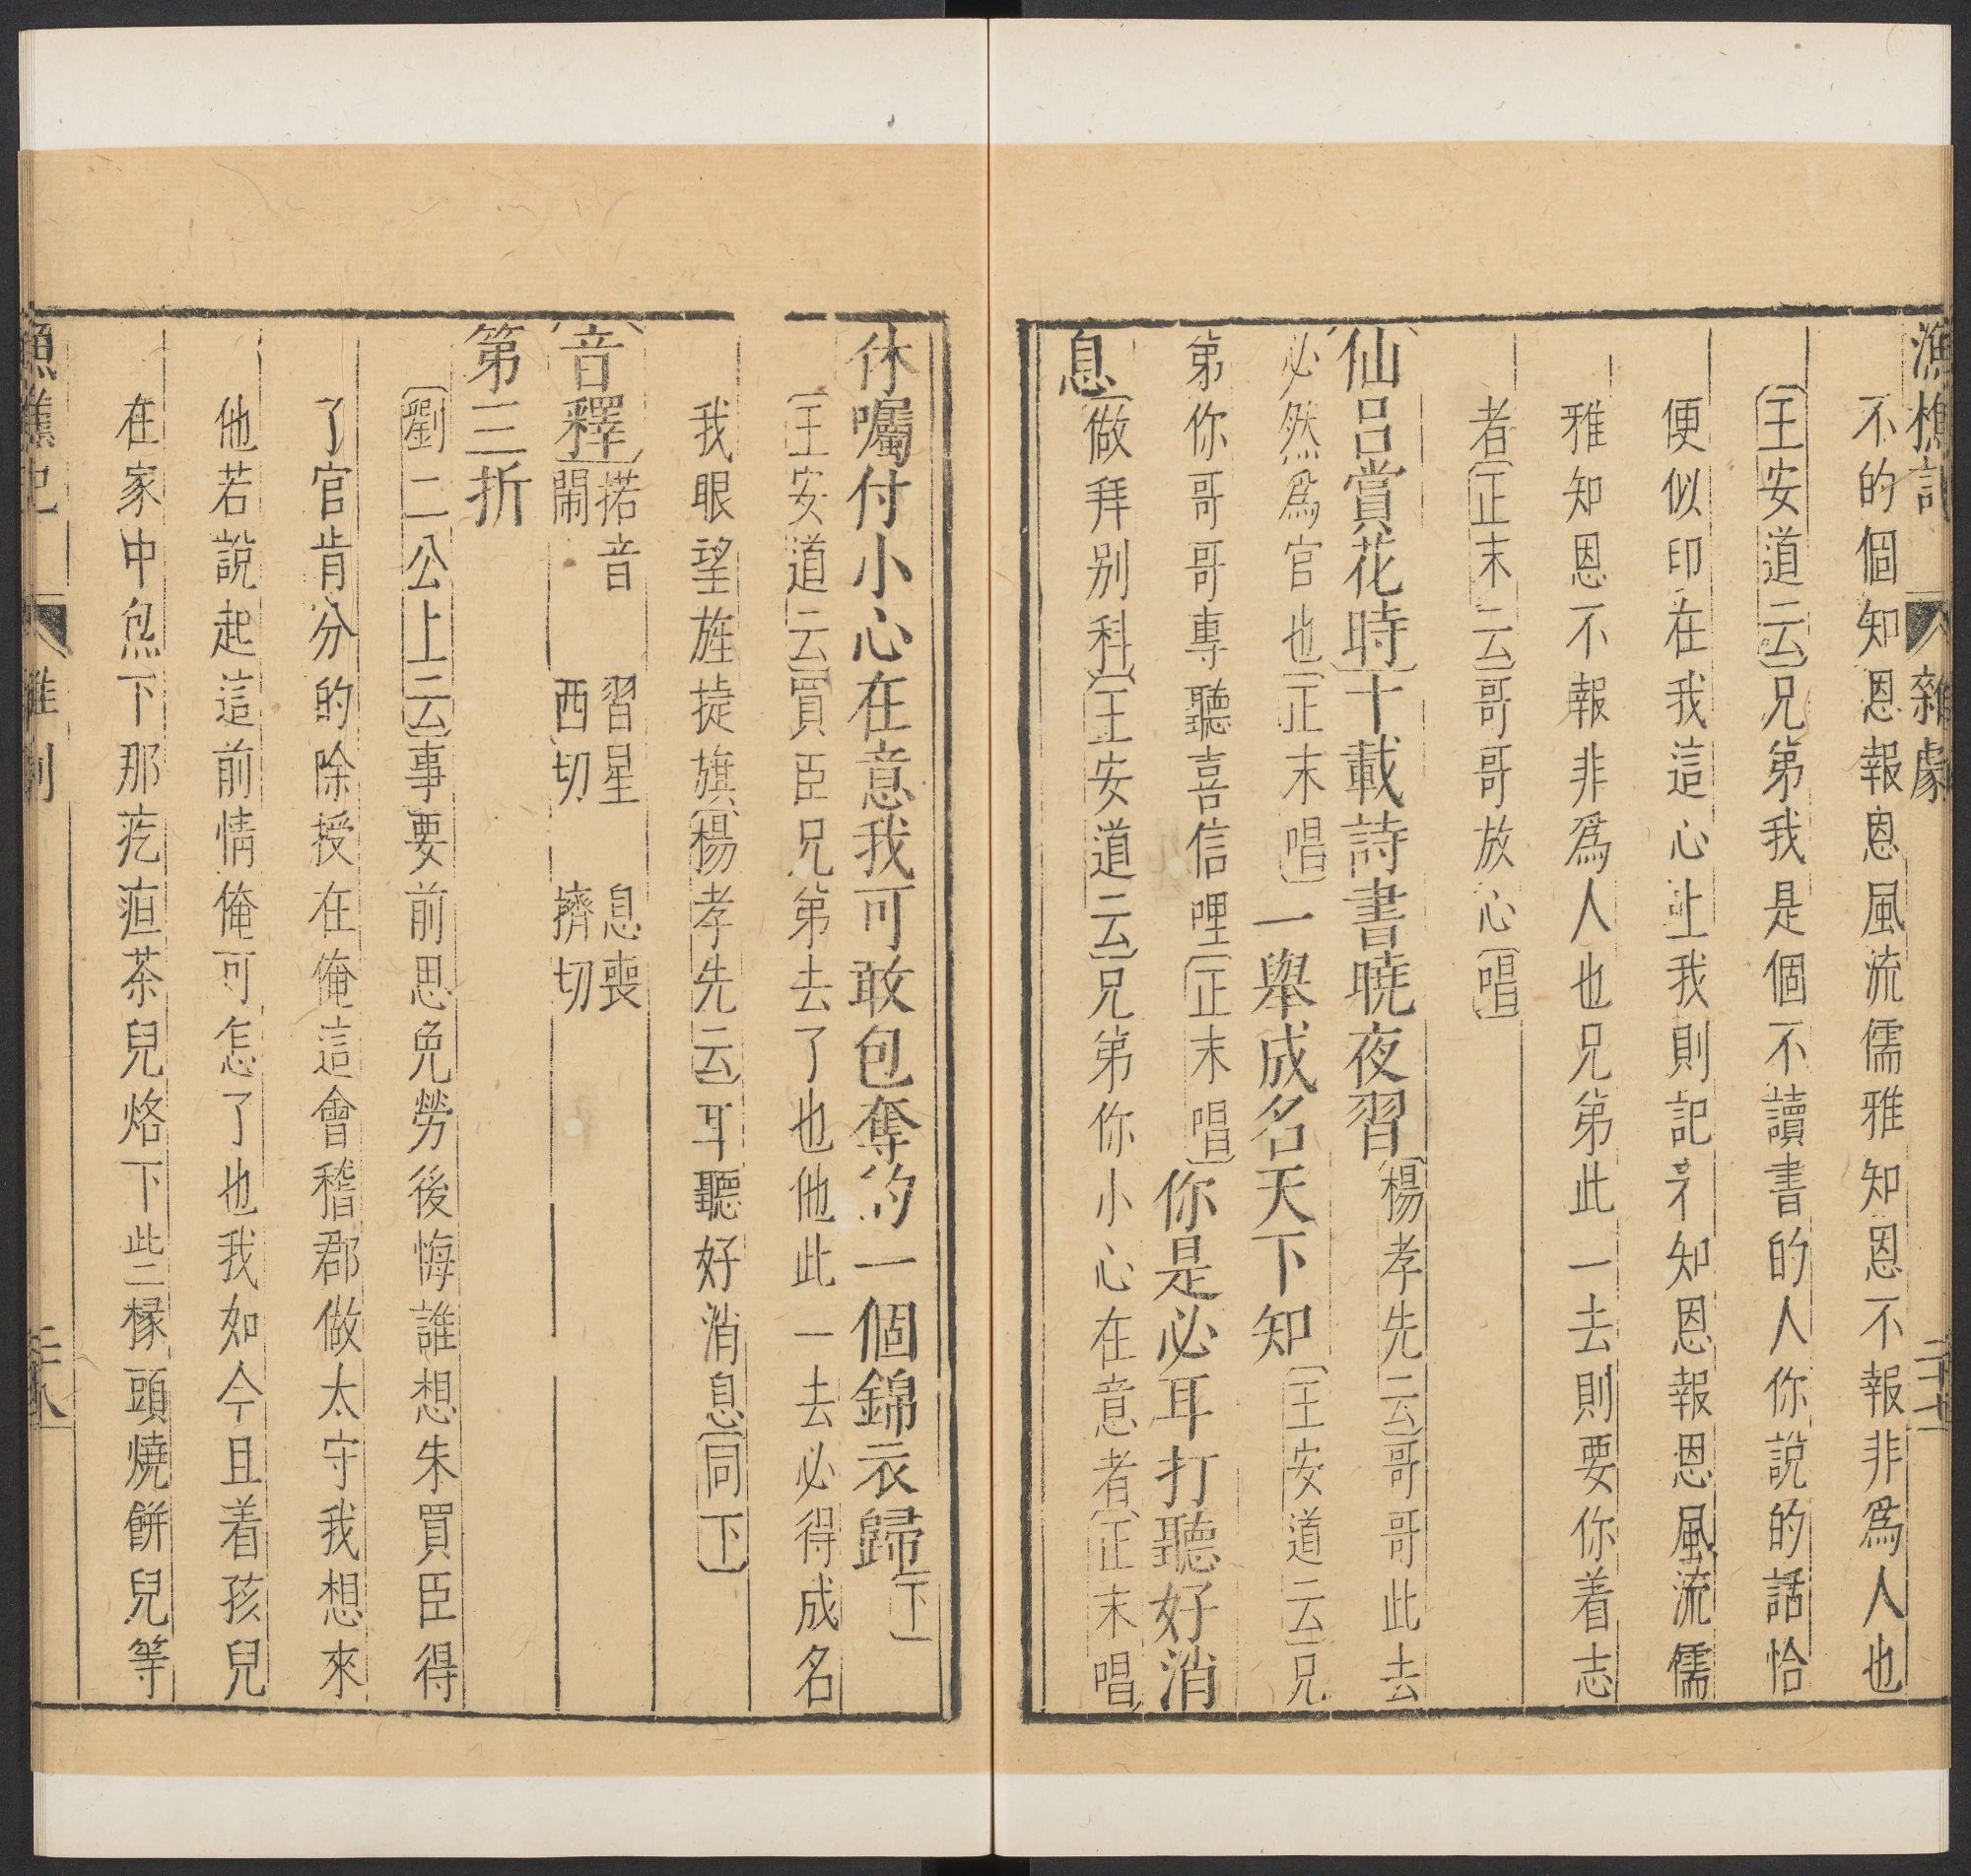 漁樵記 雜劇 二十七
不的個知恩報恩風流儒雅知恩不報非爲人也
〔王安道云〕兄弟我是個不讀書的人你說的話恰
便似印在我這心上我則記才知恩報恩風流儒
雅知恩不報非爲人也兄弟此一去則要你着志
者〔正末云〕哥哥放心〔唱〕
仙呂賞花時〕十載詩書曉夜習〔楊孝先云〕哥哥此去
必然爲官也〔正末唱〕一舉成名天下知〔王安道云〕兄
弟你哥哥專聽喜信哩〔正末唱〕你是必耳打聽好消
息〔做拜別科〕〔王安道云〕兄弟你小心在意者〔正末唱
休囑付小心在意我可敢包奪的一個錦衣歸〔下〕
〔王安道云〕買臣兄弟去了也他此一去必得成名
我眼望旌捷旗〔楊孝先云〕耳聽好消息〔同下〕
〔音釋〕掿音鬧 習星西切 息喪擠切
第三折
〔劉二公上云〕事要前思免勞後悔誰想朱買臣得
了官肯分的除授在俺這會稽郡做太守我想來
他若說起這前情俺可怎了也我如今且着孩兒
在家中炰下那疙疸茶兒烙下些椽頭燒餅兒等
漁樵記 雜劇 二十八